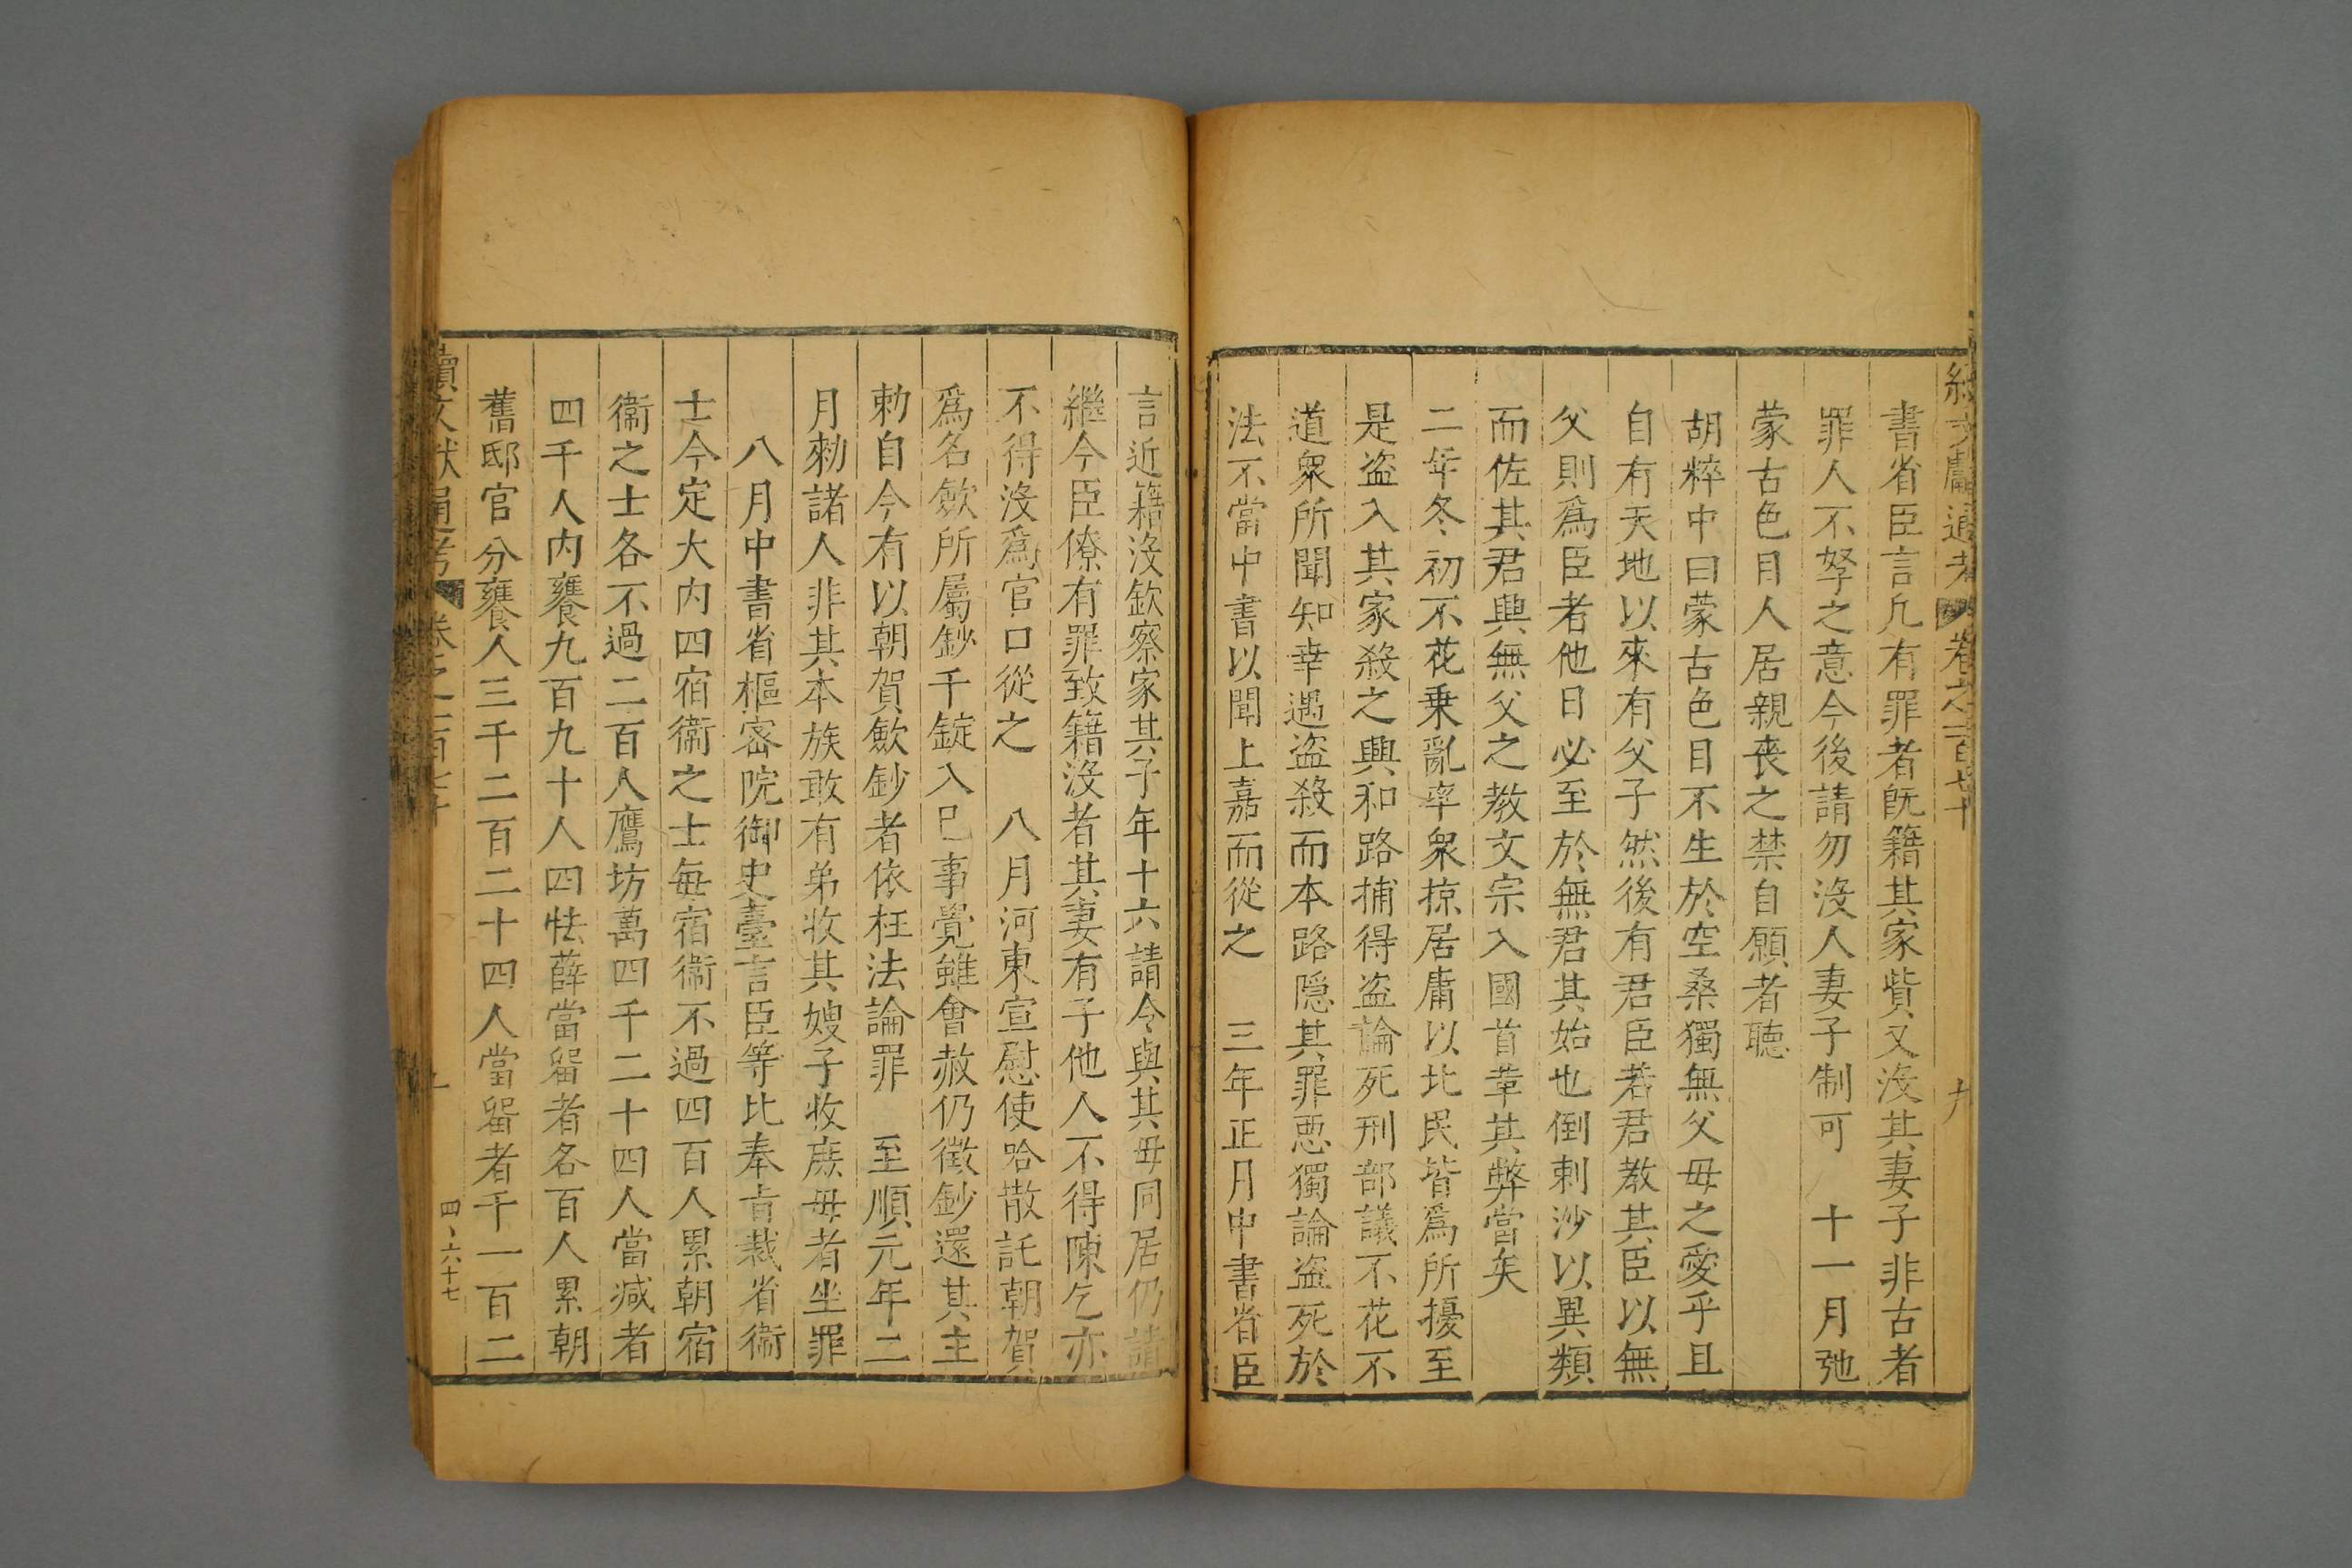 續文獻通考 卷之一百七十 九
書省臣言凡有罪者旣籍其家貲又沒其妻子非古者
罪人不孥之意今後請勿沒人妻子制可 十一月弛
蒙古色目人居親喪之禁自願者聽
胡粹中曰蒙古色目不生於空桑獨無父母之愛乎且
自有天地以來有父子然後有君臣若君教其臣以無
父則爲臣者他日必至於無君其始也倒剌沙以異類
而佐其君興無父之教文宗入國首革其弊當矣
二年冬初不花乗亂率衆掠居庸以北民皆爲所擾至
是盗入其家殺之興和路捕得盗論死刑部議不花不
道衆所聞知幸遇盗殺而本路隠其罪惡獨論盗死於
法不當中書以聞上嘉而從之 三年正月中書省臣
言近籍沒欽察家其子年十六請令與其母同居仍請
繼今臣僚有罪致籍沒者其妻有子他人不得陳乞亦
不得沒爲官口從之 八月河東宣慰使哈散託朝賀
爲名歛所屬鈔千錠入巳事覺雖會赦仍徵鈔還其主
勅自今有以朝賀歛鈔者依枉法論罪 至順元年二
月勑諸人非其本族敢有弟收其嫂子收庶母者坐罪
八月中書省樞密院御史臺言臣等比奉旨裁省衞
士今定大内四宿衞之士每宿衞不過四百人累朝宿
衞之士各不過二百人鷹坊萬四千二十四人當减者
四千人内饔九百九十人四怯薛當留者各百人累朝
舊邸官分饔人三千二百二十四人當留者千一百二
續文獻通考 卷之一百七十
四、六十七